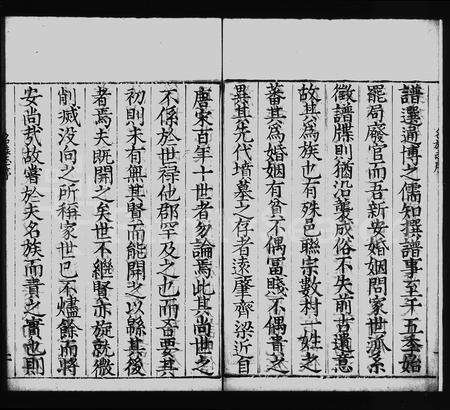 譜選通博之儒知撰譜事至于五季始
罷局廢官而吾新安婚姻問家世派系
徵譜牒則猶沿襲成俗不失前古遺意
故其為族也有殊邑聯宗數村一姓者
蕃其為婚姻有貧不偶富賤不偶貴之
異其先代墳墓之存者遠肇齊梁近自
唐宋百年十世者勿論焉此其尚世之
不係於世禄也他郡罕及之也而吾要其
初則未有無其賢而能開之以繇其後
者焉夫既開之矣世不繼賢亦旋就微
削滅没向之所稱家世已不燼餘而將
安尚哉故嘗於夫名族而責之實也則